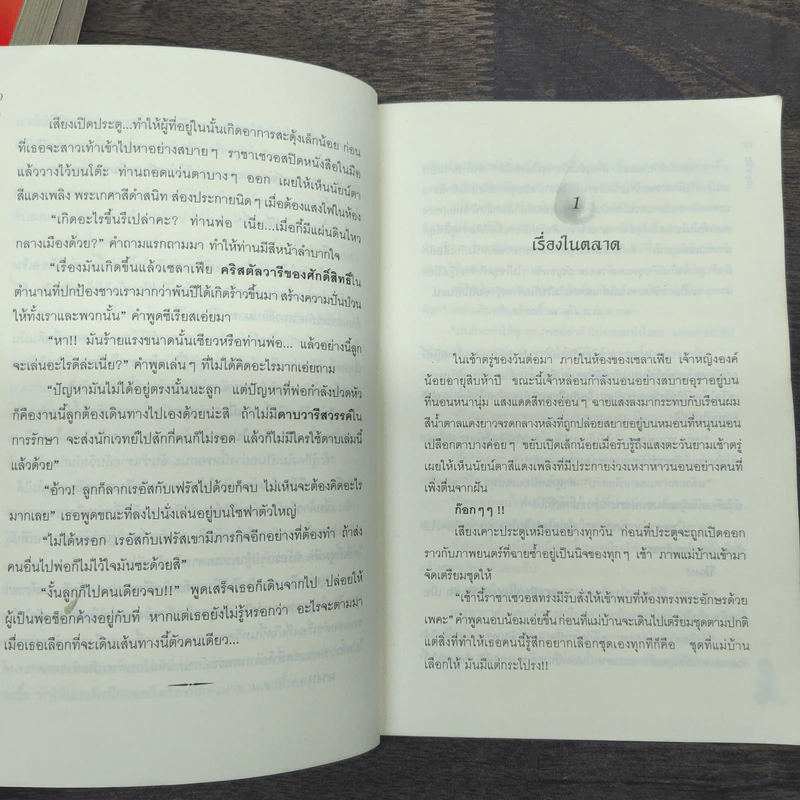 เสียงเปิดประตู...ทำให้ผู้ที่อยู่ในนั้นเกิดอาการสะดุ้งเล็กน้อย ก่อน
ที่เธอจะสาวเท้าเข้าไปหาอย่างสบายๆ ราชาเซวอสปิดหนังสือในมือ
แล้ววางไว้บนโต๊ะ ท่านถอดแว่นตาบางๆ ออก เผยให้เห็นนัยน์ตา
สีแดงเพลิง พระเกศาสีดำสนิท ส่องประกายนิดๆ เมื่อต้องแสงไฟในห้อง
“เกิดอะไรขึ้นรึเปล่าคะ? ท่านพ่อ เนี่ย...เมื่อกี้มีแผ่นดินไหว
กลางเมืองด้วย?” คำถามแรกถามมา ทำให้ท่านมีสีหน้าลำบากใจ
“เรื่องมันเกิดขึ้นแล้วเซลาเฟีย คริสตัลวารีของศักดิ์สิทธิ์ใน
ตำนานที่ปกป้องชาวเรามากว่าพันปีได้เกิดร้าวขึ้นมา สร้างความปั่นป่วน
ให้ทั้งเราและพวกนั้น” คำพูดซีเรียสเอ่ยมา
“หา!! มันร้ายแรงขนาดนั้นเชียวหรือท่านพ่อ... แล้วอย่างนี้ลูก
จะเล่นอะไรดีล่ะเนี่ย?” คำพูดเล่นๆ ที่ไม่ได้คิดอะไรมากเอ่ยถาม
“ปัญหามันไม่ได้อยู่ตรงนั้นนะลูก แต่ปัญหาที่พ่อกำลังปวดหัว
ก็คืองานนี้ลูกต้องเดินทางไปเองด้วยน่ะสี ถ้าไม่มีดาบวารีสวรรค์ใน
การรักษา จะส่งนักเวทย์ไปสักกี่คนก็ไม่รอด แล้วก็ไม่มีใครใช้ดาบเล่มนี้
แล้วด้วย”
“อ้าว! ลูกก็ลากเรอัสกับเฟรัสไปด้วยก็จบ ไม่เห็นจะต้องคิดอะไร
มากเลย” เธอพูดขณะที่ลงไปนั่งเล่นอยู่บนโซฟาตัวใหญ่
“ไม่ได้หรอก เรอัสกับเฟรัสเขามีภารกิจอีกอย่างที่ต้องทำ ถ้าส่ง
คนอื่นไปพ่อก็ไม่ไว้ใจมันซะด้วยสิ”
“งั้นลูกก็ไปคนเดียวจบ!!” พูดเสร็จเธอก็เดินจากไป ปล่อยให้
ผู้เป็นพ่อช็อกค้างอยู่กับที่ หากแต่เธอยังไม่รู้หรอกว่า อะไรจะตามมา
เมื่อเธอเลือกที่จะเดินเส้นทางนี้ตัวคนเดียว...
1
เรื่องในตลาด
ในเช้าตรู่ของวันต่อมา ภายในห้องของเซลาเฟีย เจ้าหญิงองค์
น้อยอายุสิบห้าปี ขณะนี้เจ้าหล่อนกำลังนอนอย่างสบายอุราอยู่บน
ที่นอนหนานุ่ม แสงแดดสีทองอ่อนๆ ฉายแสงลงมากระทบกับเรือนผม
สีน้ำตาลแดงยาวจรดกลางหลังที่ถูกปล่อยสยายอยู่บนหมอนที่หนุนนอน
เปลือกตาบางค่อยๆ ขยับเปิดเล็กน้อยเมื่อรับรู้ถึงแสงตะวันยามเช้าตรู่
เผยให้เห็นนัยน์ตาสีแดงเพลิงที่มีประกายง่วงเหงาหาวนอนอย่างคนที่
เพิ่งตื่นจากฝัน
ก๊อกๆๆ !!
เสียงเคาะประตูเหมือนอย่างทุกวัน ก่อนที่ประตูจะถูกเปิดออก
ราวกับภาพยนตร์ที่ฉายซ้ำอยู่เป็นนิจของทุกๆ เช้า ภาพแม่บ้านเข้ามา
จัดเตรียมชุดให้
“เช้านี้ราชาเซวอสทรงมีรับสั่งให้เข้าพบที่ห้องทรงพระอักษรด้วย
เพคะ” คำพูดนอบน้อมเอ่ยขึ้น ก่อนที่แม่บ้านจะเดินไปเตรียมชุดตามปกติ
แต่สิ่งที่ทำให้เธอคนนี้รู้สึกอยากเลือกชุดเองทุกทีก็คือ ชุดที่แม่บ้าน
เลือกให้ มันมีแต่กระโปรง!!